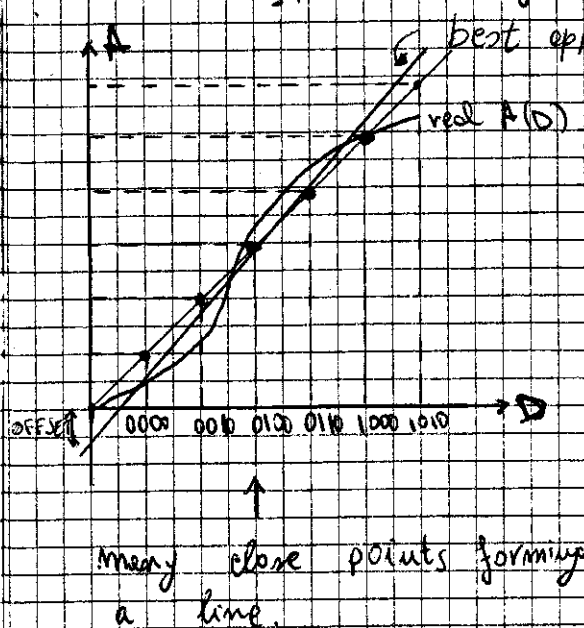 A
best
real A(D)
OFFSET
0000 0010 0100 0110 1000 1010
D
many close points forming
a line.